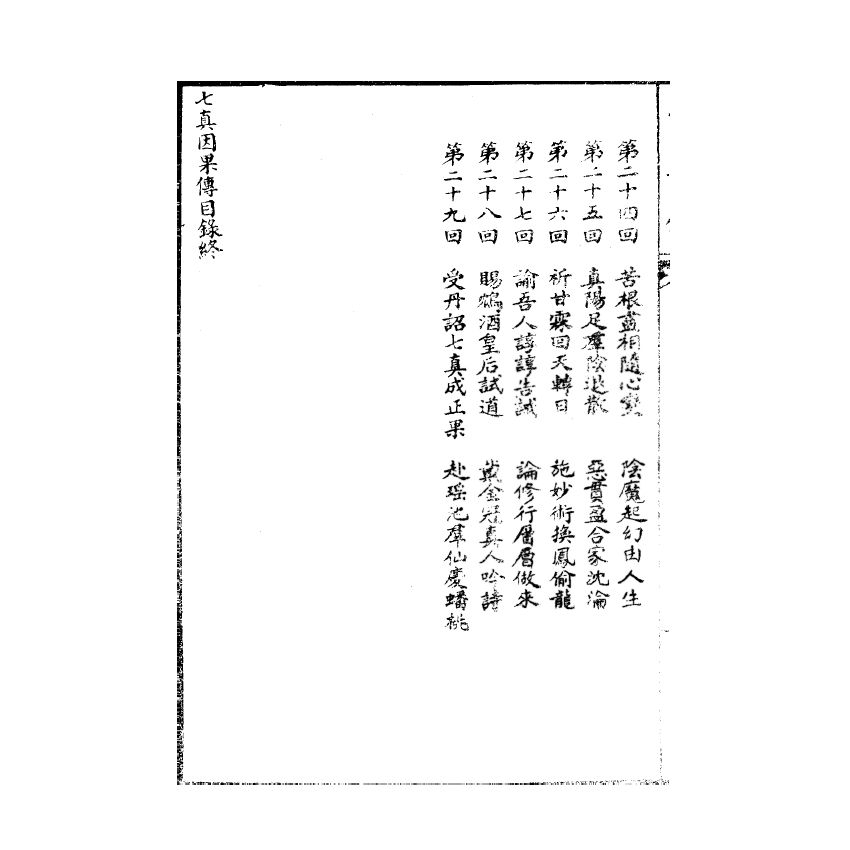 第二十四回 苦根盡相隨心變 陰魔起幻由人生
第二十五回 真陽足羣陰退散 惡貫盈合家沈淪
第二十六回 祈甘霖回天轉日 施妙術換鳳偷龍
第二十七回 諭吾人諄諄告誡 論修行層層做來
第二十八回 賜鴆酒皇后試道 戴金冠真人吟詩
第二十九回 受丹詔七真成正果 赴瑤池羣仙慶蟠桃
七真因果傳目錄終